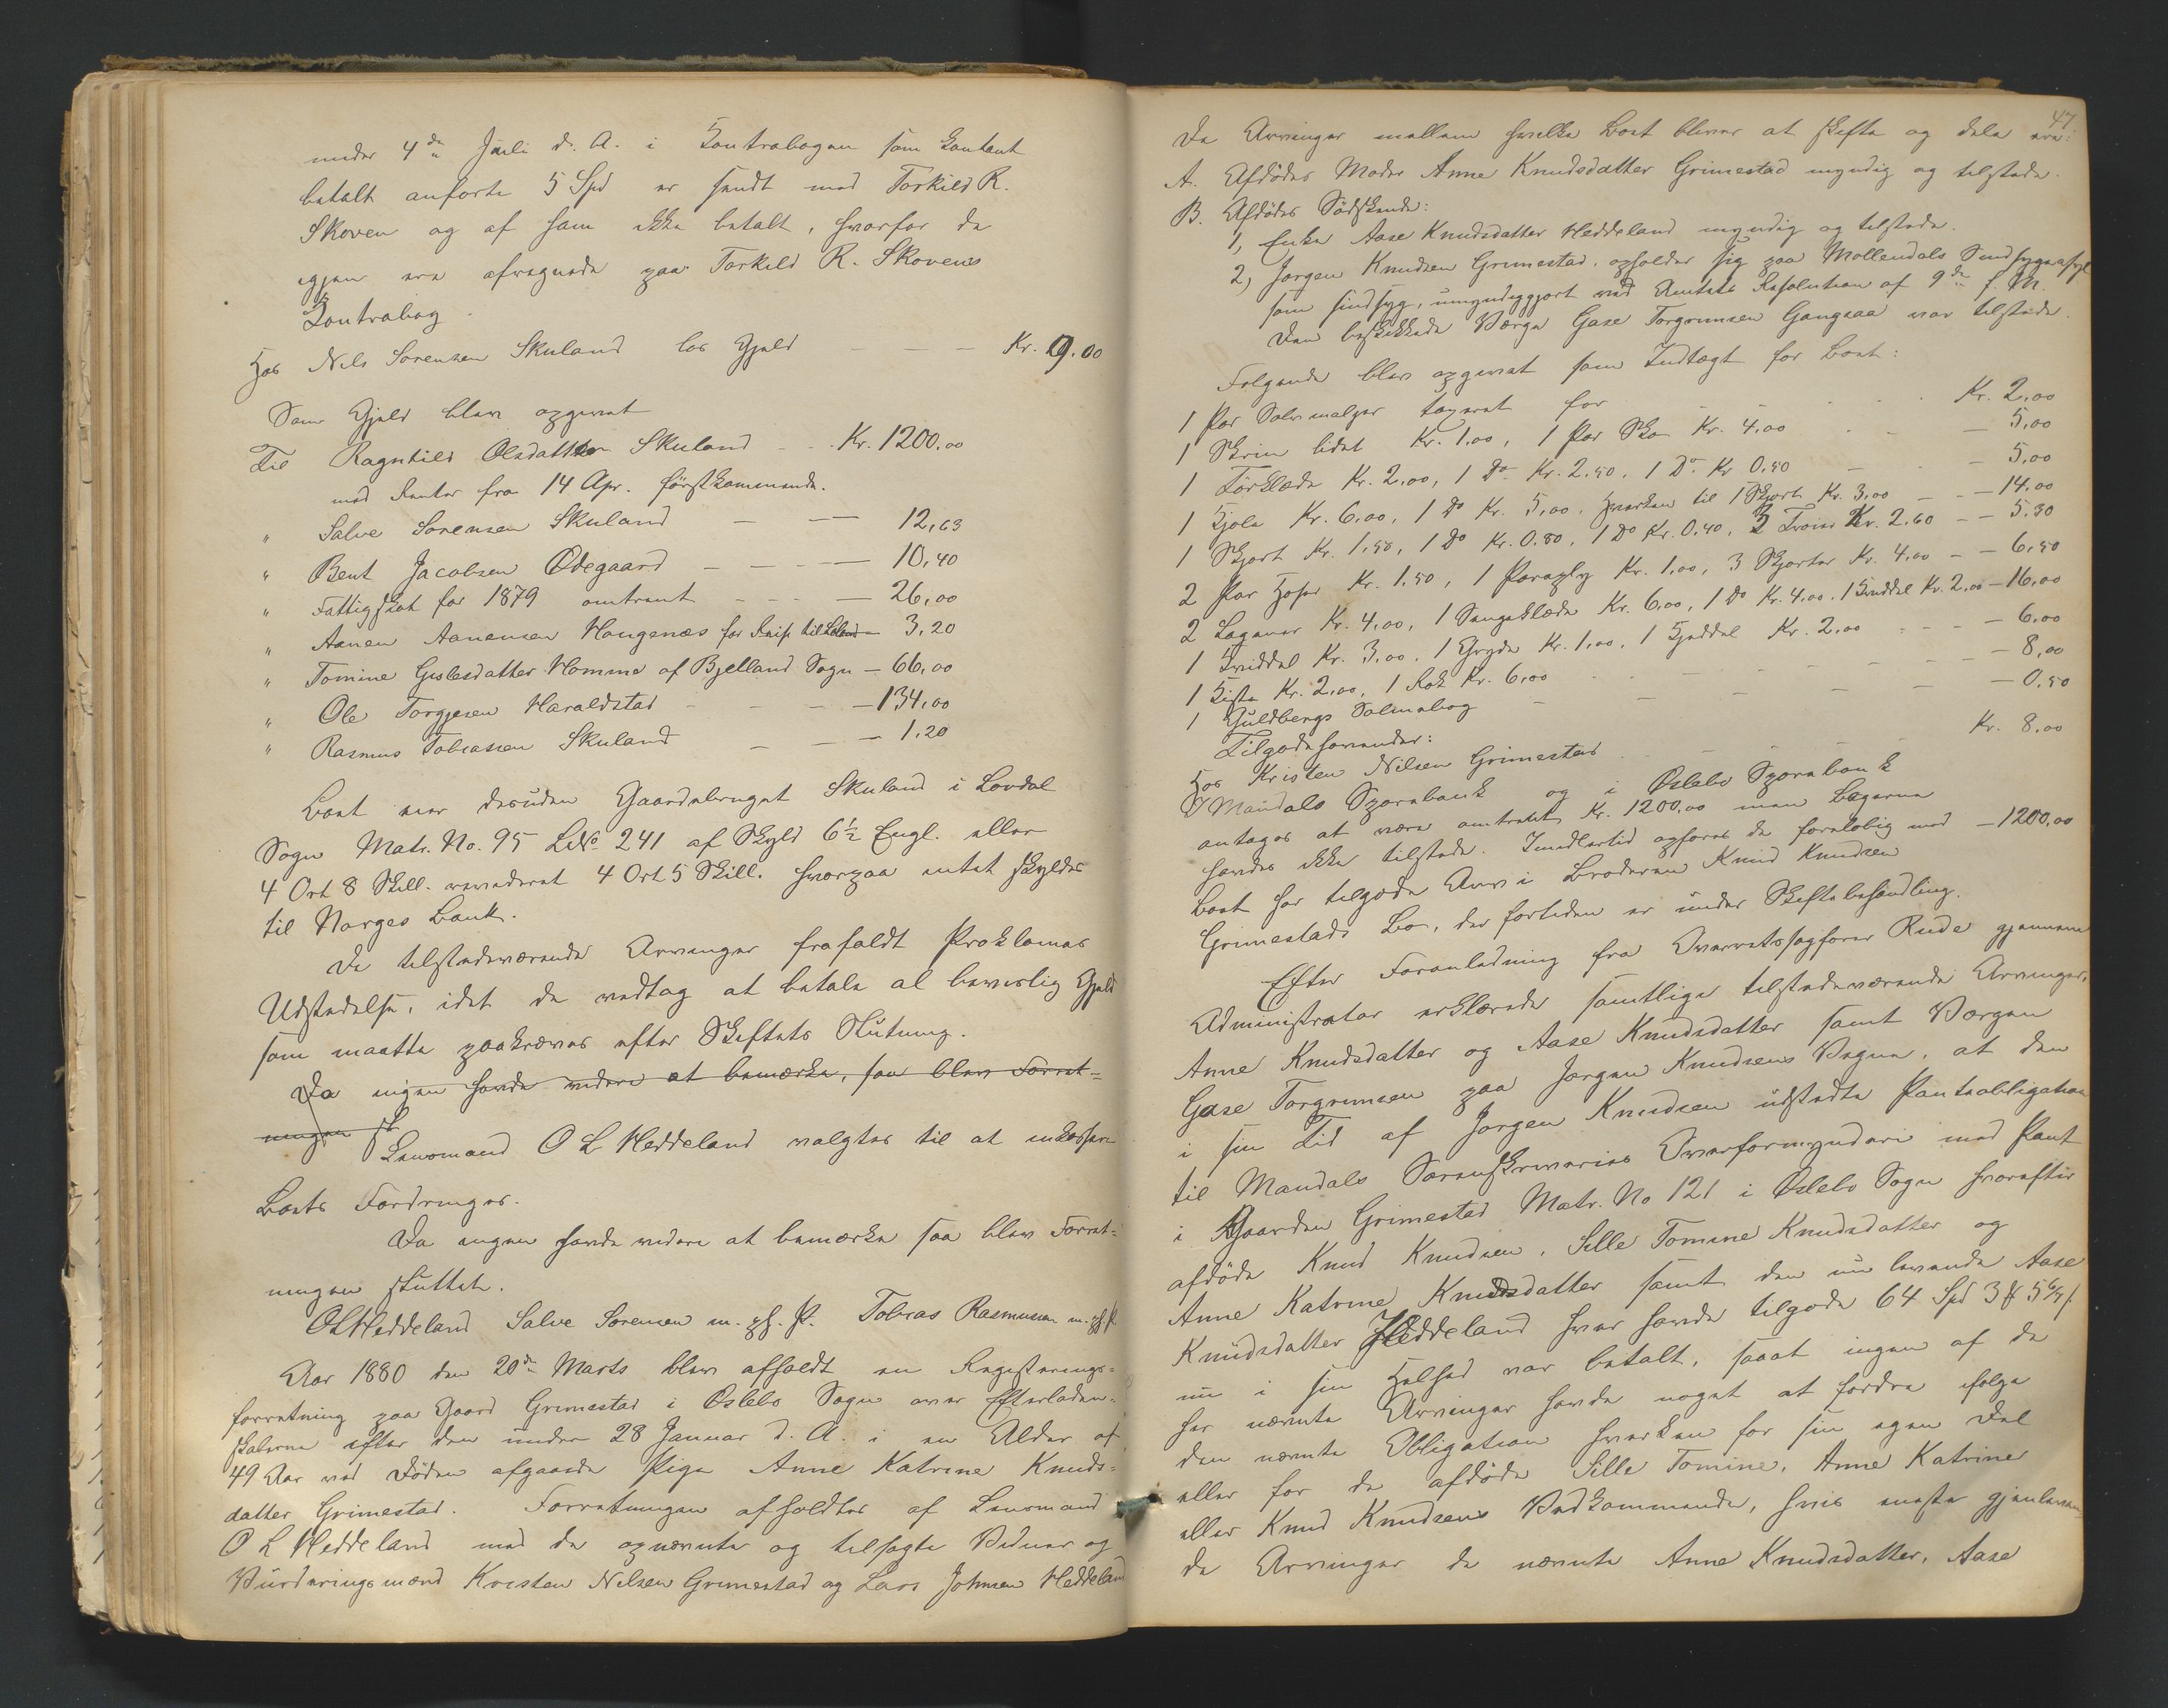 under 4de Juli d. A. i Kontrabogen som kontant
betalt anførte 5 Spd er sendt med Torkild R.
Skoven og af ham ikke betalt, hvorfor de
igjen ere afregnede paa Torkild R. Skovens
Kontrabog.
Hos Nils Sørensen Skuland lös Gjeld — — — Kr. 9.00
Som Gjeld blev opgivet
Til Ragnhild Olsdatter Skuland — Kr. 1200.00
med Renter fra 14 Apr. førstkommende.
" Salve Sørensen Skuland — — 12,63
" Bent Jacobsen Ødegaard — — — 10,40
" Fattigskat for 1879 omtrent — — — 26,00
" Aanen Aanensen Haugenæs for Reise til — 3,20
" Tomine Gislesdatter Homme af Bjelland Sogn — 66,00
" Ole Torgjesen Haraldstad — — — 134,00
" Rasmus Tobiassen Skuland — — — 1,20
Boet eier desuden Gaardsbruget Skuland i Løvdal
Sogn Matr. No. 95 LNo 241 af Skyld 6½ Engl. eller
4 Ort 8 Skill. revideret 4 Ort 5 Skill. hvorpaa intet skyldes
til Norges Bank.
De tilstedeværende Arvinger frafaldt Proklamas
Udstedelse, idet de vedtog at betale al beviislig Gjeld
som maatte paakræves efter Skiftets Slutning.
Da ingen havde videre at bemærke, saa blev Forret-
ningen sl
Lensmand O L Heddeland valgtes til at inkassere
Boets Fordringer.
Da ingen havde videre at bemærke saa blev Forret-
ningen sluttet.
OLHeddeland Salve Sørensen m. p. P. Tobias Rasmussen m. p. P.
Aar 1880 den 20de Marts blev afholdt en Registrerings-
forretning paa Gaard Grimestad i Øslebø Sogn over Efterladen-
skaberne efter den under 28 Januar d. A. i en Alder af
49 Aar ved Døden afgaaede Pige Anne Katrine Knuds-
datter Grimestad. Forretningen afholdtes af Lensmand
O L Heddeland med de opnævnte og tilsagte Vidner og
Vurderingsmænd Kristen Nilsen Grimestad og Lars Johnsen Heddeland
47
De Arvinger mellem hvilke Boet bliver at skifte og dele ere:
A. Afdødes Moder Anne Knudsdatter Grimestad myndig og tilstede.
B. Afdødes Södskende:
1, Enke Aase Knudsdatter Heddeland myndig og tilstede.
2, Jørgen Knudsen Grimestad, opholder sig paa Møllendals Sindsygeasyl
som sindsyg, umyndiggjort ved Amtets Resolution af 9de f. M.
Den beskikkede Værge Gase Torgrimsen Gangsaa var tilstede.
Følgende blev opgivet som Indtægt for Boet:
1 Par Sølvmalper taxeret for — — Kr. 2,00
1 Skrin lidet Kr. 1,00, 1 Par Sko Kr. 4.00 — — 5,00
1 Törklæde Kr. 2,00, 1 Do Kr. 2.50, 1 Do Kr 0.50 — — 5,00
1 Kjole Kr. 6,00, 1 Do Kr. 5,00, Hvarken til 1 Skjort Kr. 3,00 — — 14.00
1 Skjort Kr. 1.50, 1 Do Kr. 0.80, 1 Do Kr. 0.40, 2 Tröier Kr. 2.60 — — 5.30
2 Par Hoser Kr. 1.50, 1 Paraply Kr. 1.00, 3 Skjorter Kr. 4,00 — — 6,50
2 Lagener Kr. 4.00, 1 Sengeklæde Kr. 6,00, 1 Do Kr. 4.00. 1 Hviddel Kr. 2.00 — 16,00
1 Hviddel Kr. 3,00, 1 Gryde Kr. 1,00, 1 Kjeddel Kr. 2.00 — — 6,00
1 Kiste Kr. 2,00, 1 Rok Kr. 6,00 — — 8,00
1 Guldbergs Salmebog — — 0,50
Tilgodehavender:
Hos Kristen Nilsen Grimestad — — Kr. 8.00
I Mandals Sparebank og i Øslebø Sparebank
antages at være omtrent Kr. 1200.00 men Bøgerne
havdes ikke tilstede. Imidlertid opføres de foreløbig med — 1200,00
Boet har tilgode Arv i Broderen Knud Knudsen
Grimestads Bo, der fortiden er under Skiftebehandling.
Efter Foranledning fra Overretssagfører Rude gjennem
Administrator erklærede samtlige tilstedeværende Arvinger,
Anne Knudsdatter og Aase Knudsdatter samt Værgen
Gase Torgrimsen paa Jørgen Knudsens Vegne, at den
i sin Tid af Jørgen Knudsen udstedte Panteobligation
til Mandals Sorenskriveries Overformynderi med Pant
i Gaarden Grimestad Matr. No 121 i Øslebø Sogn hvorefter
afdøde Knud Knudsen, Sille Tomine Knudsdatter og
Anne Katrine Knudsdatter samt den nu levende Aase
Knudsdatter Heddeland hver havde tilgode 64 Spd 3 5 6/7
nu i sin Helhed var betalt, saaat ingen af de
her nævnte Arvinger havde noget at fordre ifølge
den nævnte Obligation hverken for sin egen Del
eller for de afdøde Sille Tomine, Anne Katrine
eller Knud Knudsens Vedkommende, hvis eneste gjenleven-
de Arvinger de nævnte Anne Knudsdatter, Aase